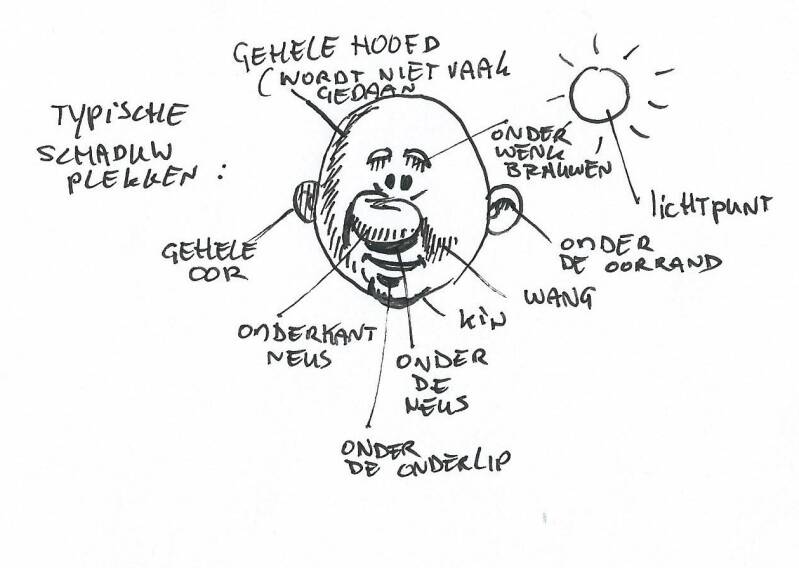 GEHELE HOOFD
(WORDT NIET VAAK
GEDAAN
TYPISCHE
SCHADUW
PLEKKEN :
ONDER
WENK
BRAUWEN
lichtpunt
GEHELE
OOR
ONDER
DE OORRAND
WANG
KiN
ONDERKANT
NEUS
ONDER
DE
NEUS
ONDER
DE ONDERLIP